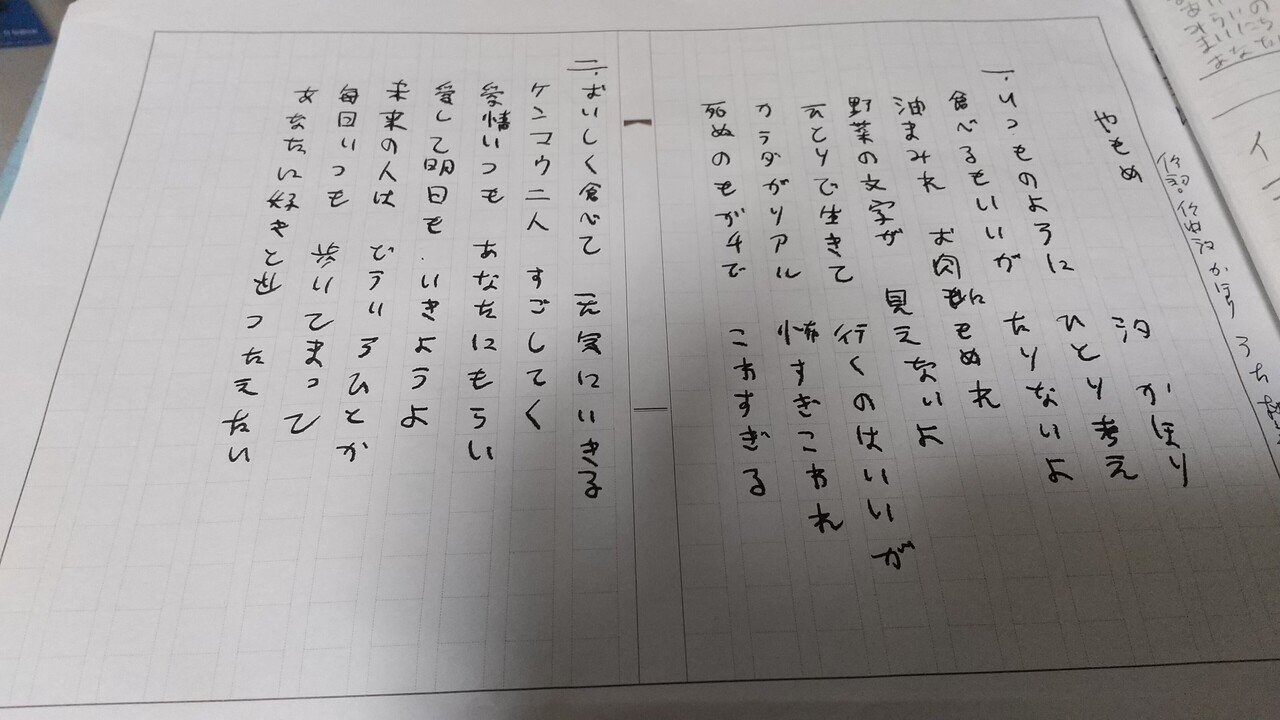 やもめ
汐 かほり
一.いつものように ひとり考え
食べるもいいが たりないよ
油まみれ お肉もぬれ
野菜の文字が 見えないよ
一人とりで生きて 行くのはいいが
カラダがリアル 怖すぎこわれ
死ぬのもガチで こわすぎる
二.おいしく食べて 元気にいきる
ケンコウ二人 すごしてく
愛情いつも あなたにもらい
愛して明日も いきようよ
未来の人は どういうひとか
毎日いつも 歩いてまって
あなたに好きと 送ったえたい